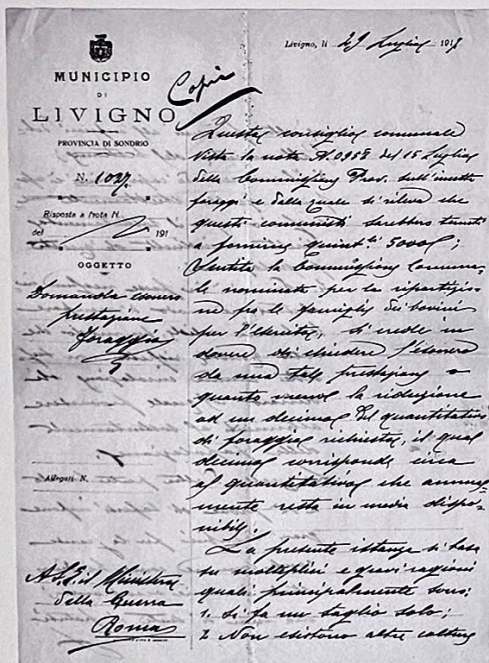 Livigno, li 29 Luglio 1918
MUNICIPIO
DI
LIVIGNO
PROVINCIA DI SONDRIO
Copia
N. 1027.
Risposta a Nota N.
del 191
OGGETTO
Domanda esonero
prestazione
foraggio
Allegati N.
A S. E. il Ministro
della Guerra
Roma
Questo consiglio comunale
Vista la nota N. 0958 del 15 Luglio
della Commissione Prov.
foraggi e dalla quale si rileva che
questi comunisti sarebbero tenuti
a fornire quint.li 5000;
Sentita la Commissione Comuna-
le nominata per la ripartizio-
ne fra le famiglie dei bovini
per l'esercito, si crede in
dovere di chiedere l'esonero
da una tale prestazione o
quanto meno la riduzione
ad un decimo del quantitativo
di foraggio richiesto, il qual
decimo corrisponde circa
al quantitativo che annual-
mente resta in media dispo-
nibile.
La presente istanza si basa
su molteplici e gravi ragioni
quali principalmente sono:
1. Si fa un taglio solo;
2 Non esistono altre colture